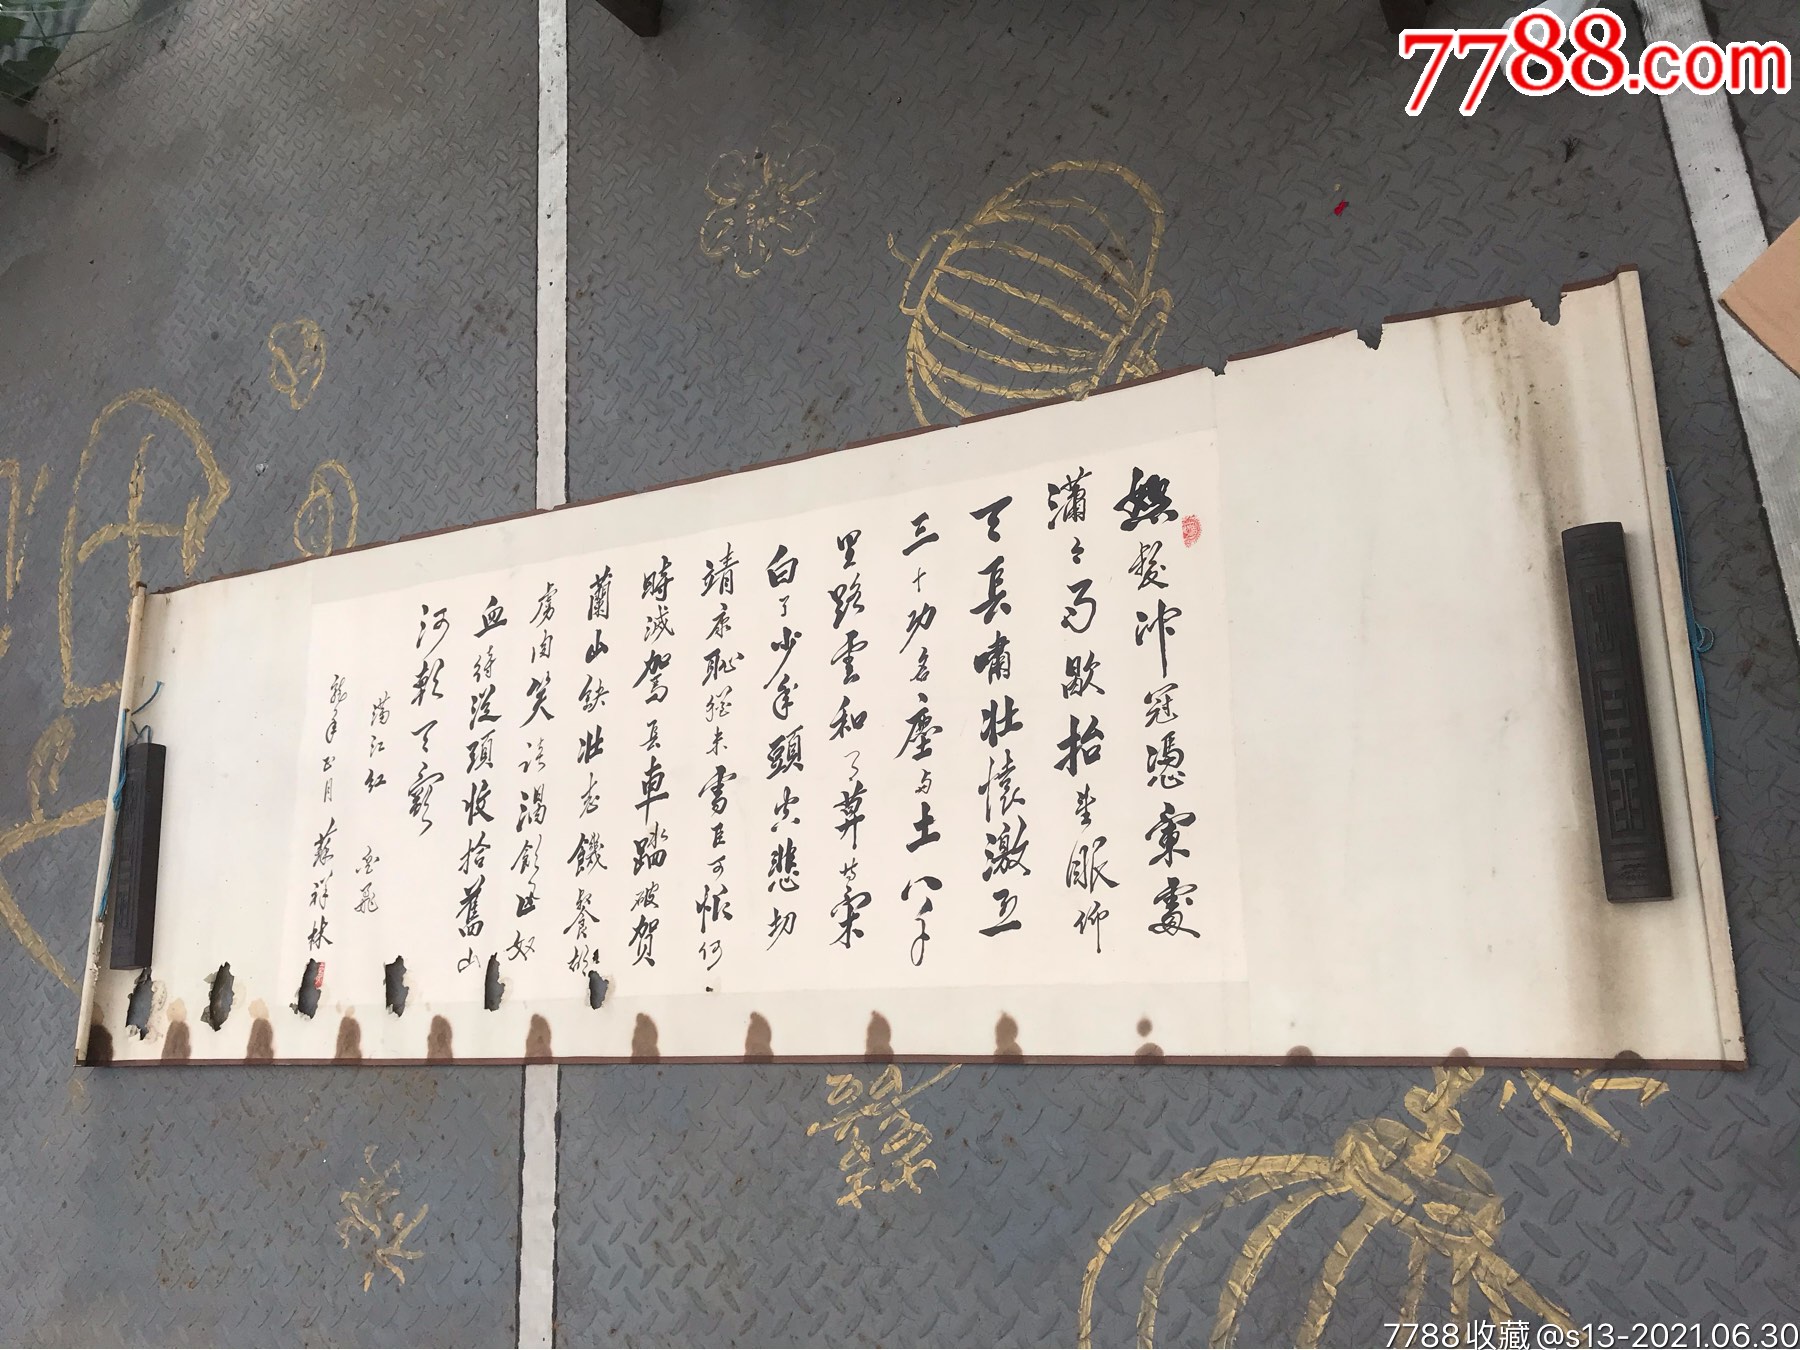 7788.com
怒髮沖冠憑闌處
瀟々雨歇抬望眼仰
天長嘯壯懷激烈
三十功名塵与土八千
里路雲和月莫等閑
白了少年頭空悲切
靖康恥猶未雪臣子恨何
時滅駕長車踏破賀
蘭山缺壯志饑餐胡
虜肉笑談渴飲匈奴
血待從頭收拾舊山
河朝天闕
滿江紅 岳飛
龍年正月 祥林
7788收藏@s13-2021.06.30